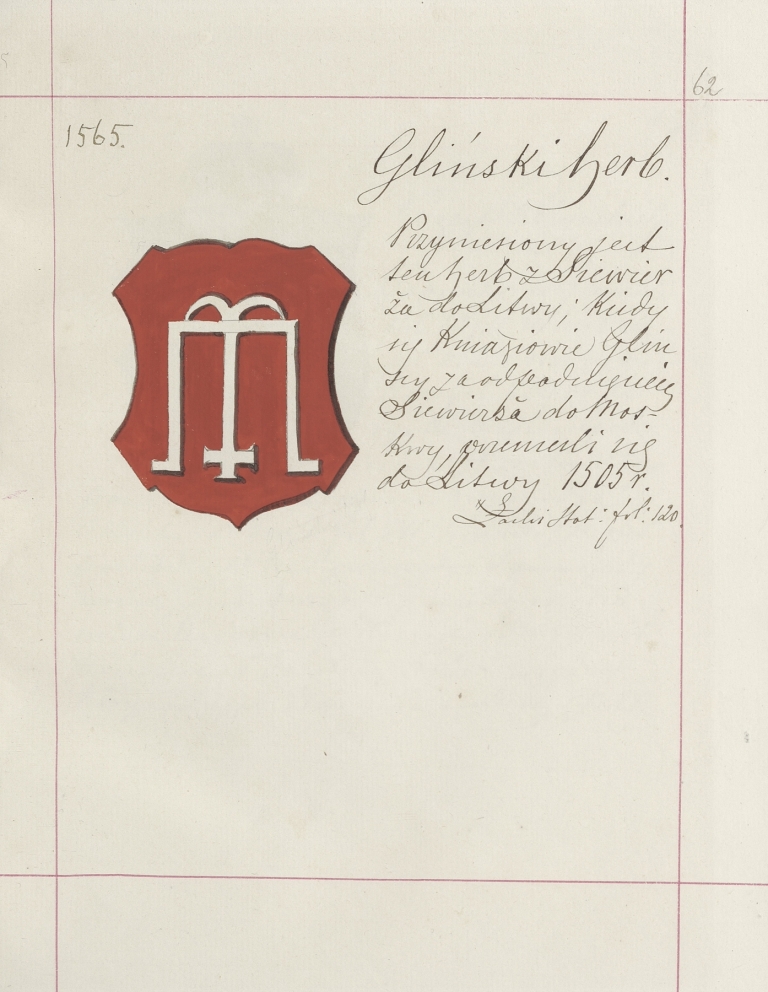 62
1565.
Gliński herb.
Przyniesiony jest
ten herb z Siewier
ża do Litwy; Kiedy
się Kniaziowie Glin
scy za odpadnięciem
Siewierża do Mos-
kwy, przenieśli się
do Litwy 1505 r.
Stat: fol: 120.